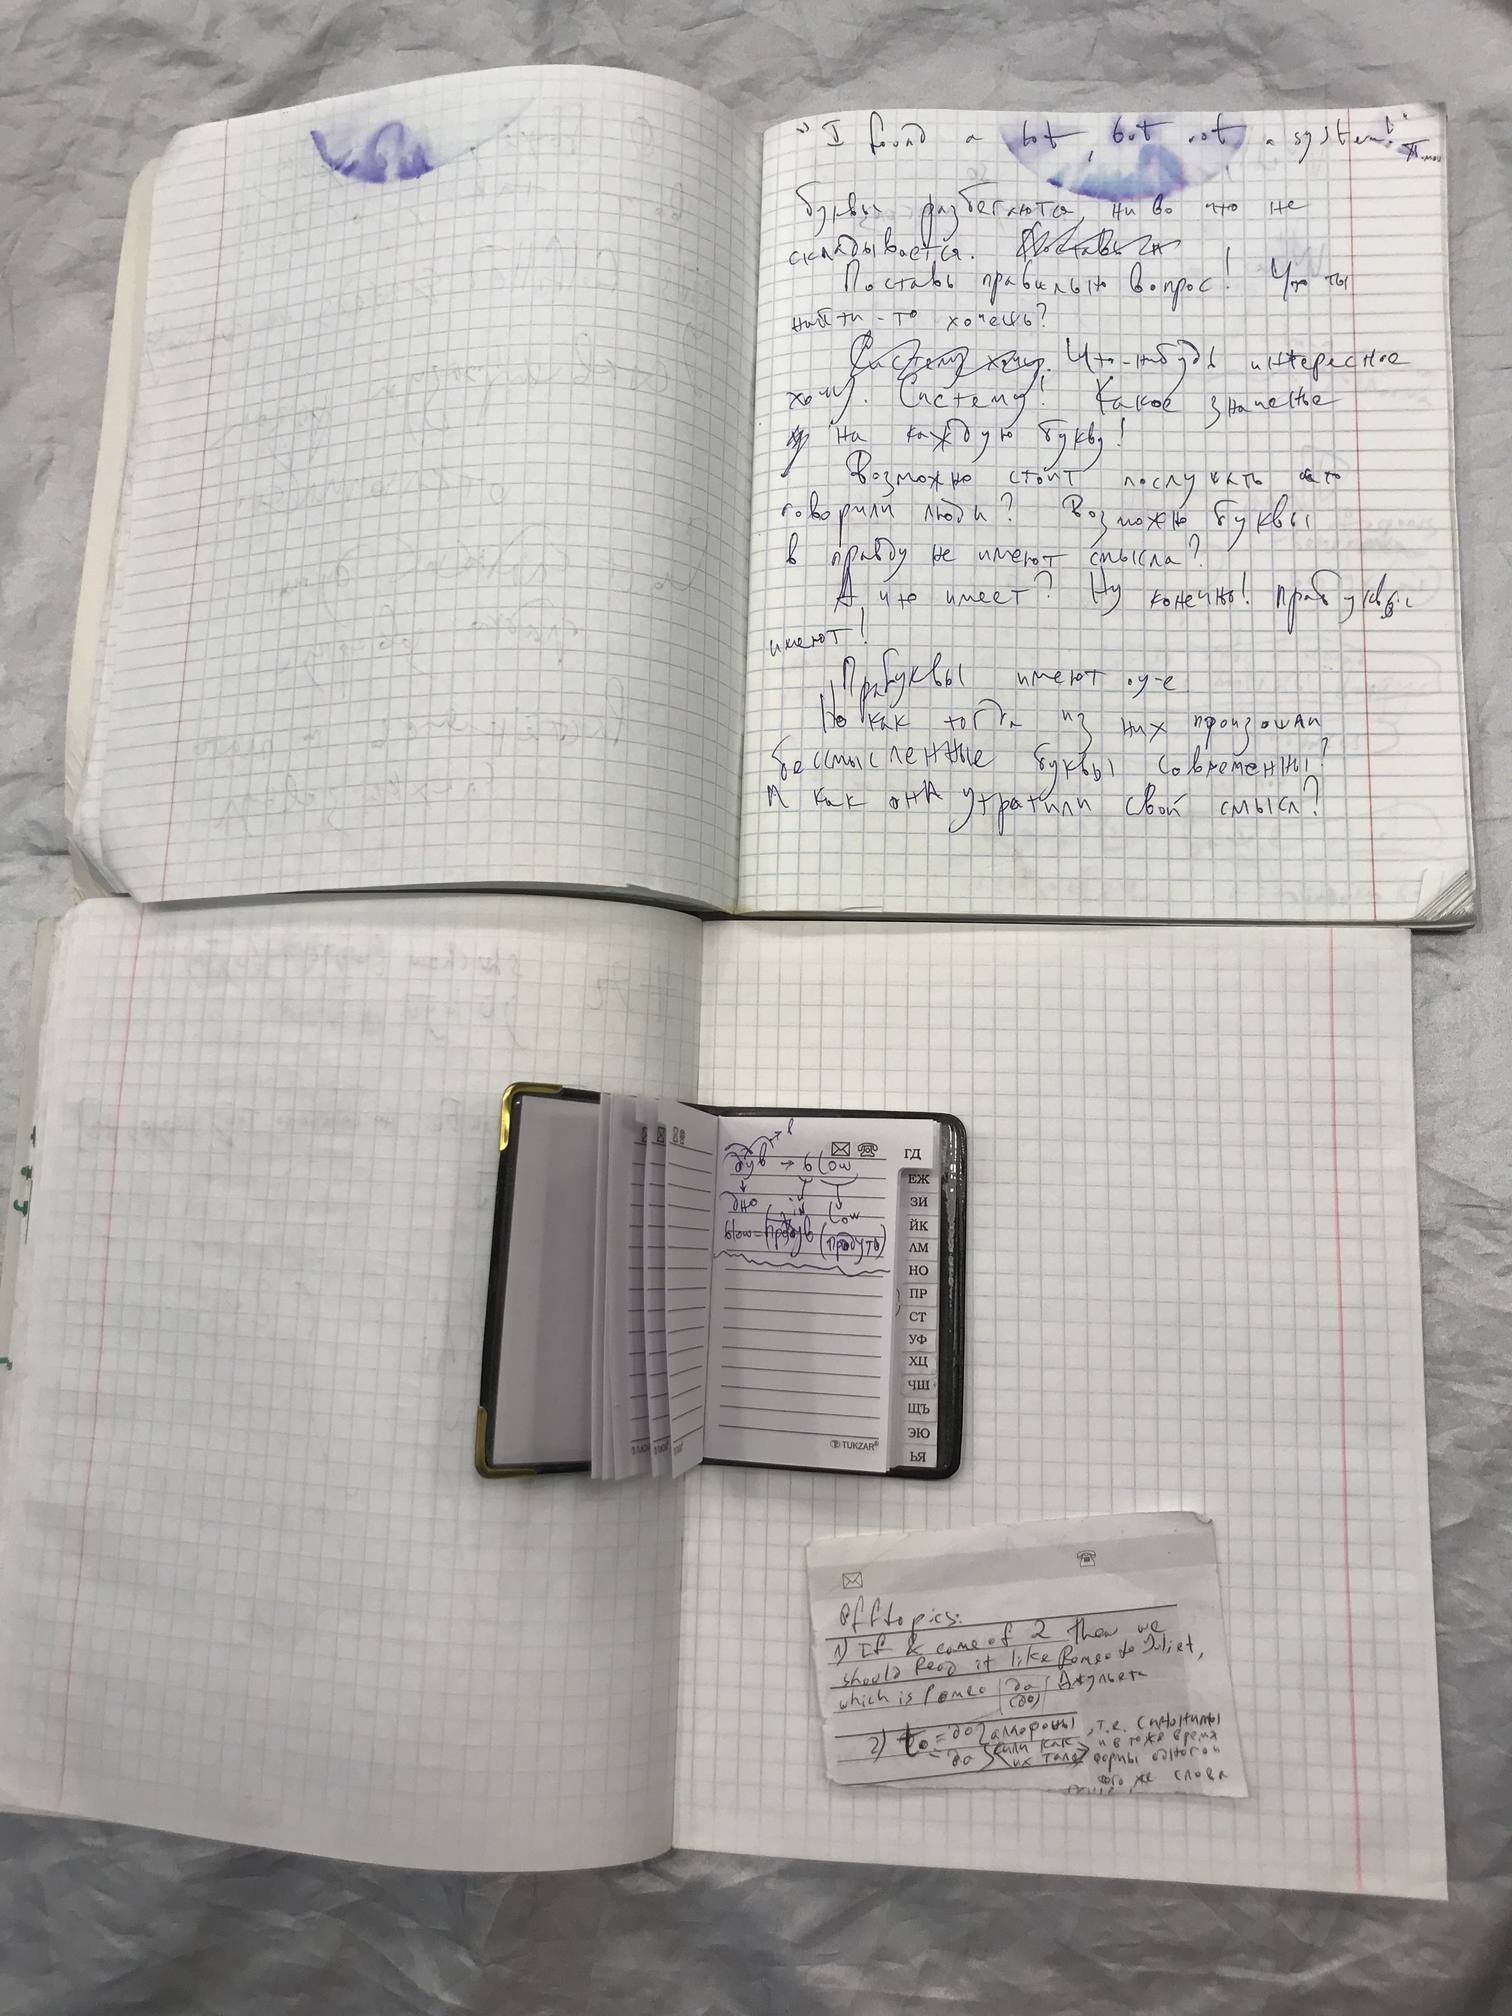 I found a bot, but not a system!
буквы разбегаются, ни во что не
складывается.
Поставь правильно вопрос! Что ты
найти-то хочешь?
Систему хочу. Что-нибудь интересное
хочу. Систему! Какое значенье
на каждую букву!
Возможно стоит послушать что
говорили люди? Возможно буквы
в правду не имеют смысла?
А что имеет? Ну конечно! Прабуквы
имеют!
Прабуквы имеют
Но как тогда из них произошли
бессмысленные буквы современны?
И как они утратили свой смысл?
дув → blow
дно
low
blow = (продуть)
ГД
ЕЖ
ЗИ
ЙК
ЛМ
НО
ПР
СТ
УФ
ХЦ
ЧШ
ЩЪ
ЭЮ
ЬЯ
TUKZAR®
Offtopics:
1) If & come of 2 then we
should read it like Romeo to Juliet,
which is Ромео да (до) Джульета
2) to = до аллороны, т.е. синонимы
= да или как их там и в тоже время
формы одного и
того же слова